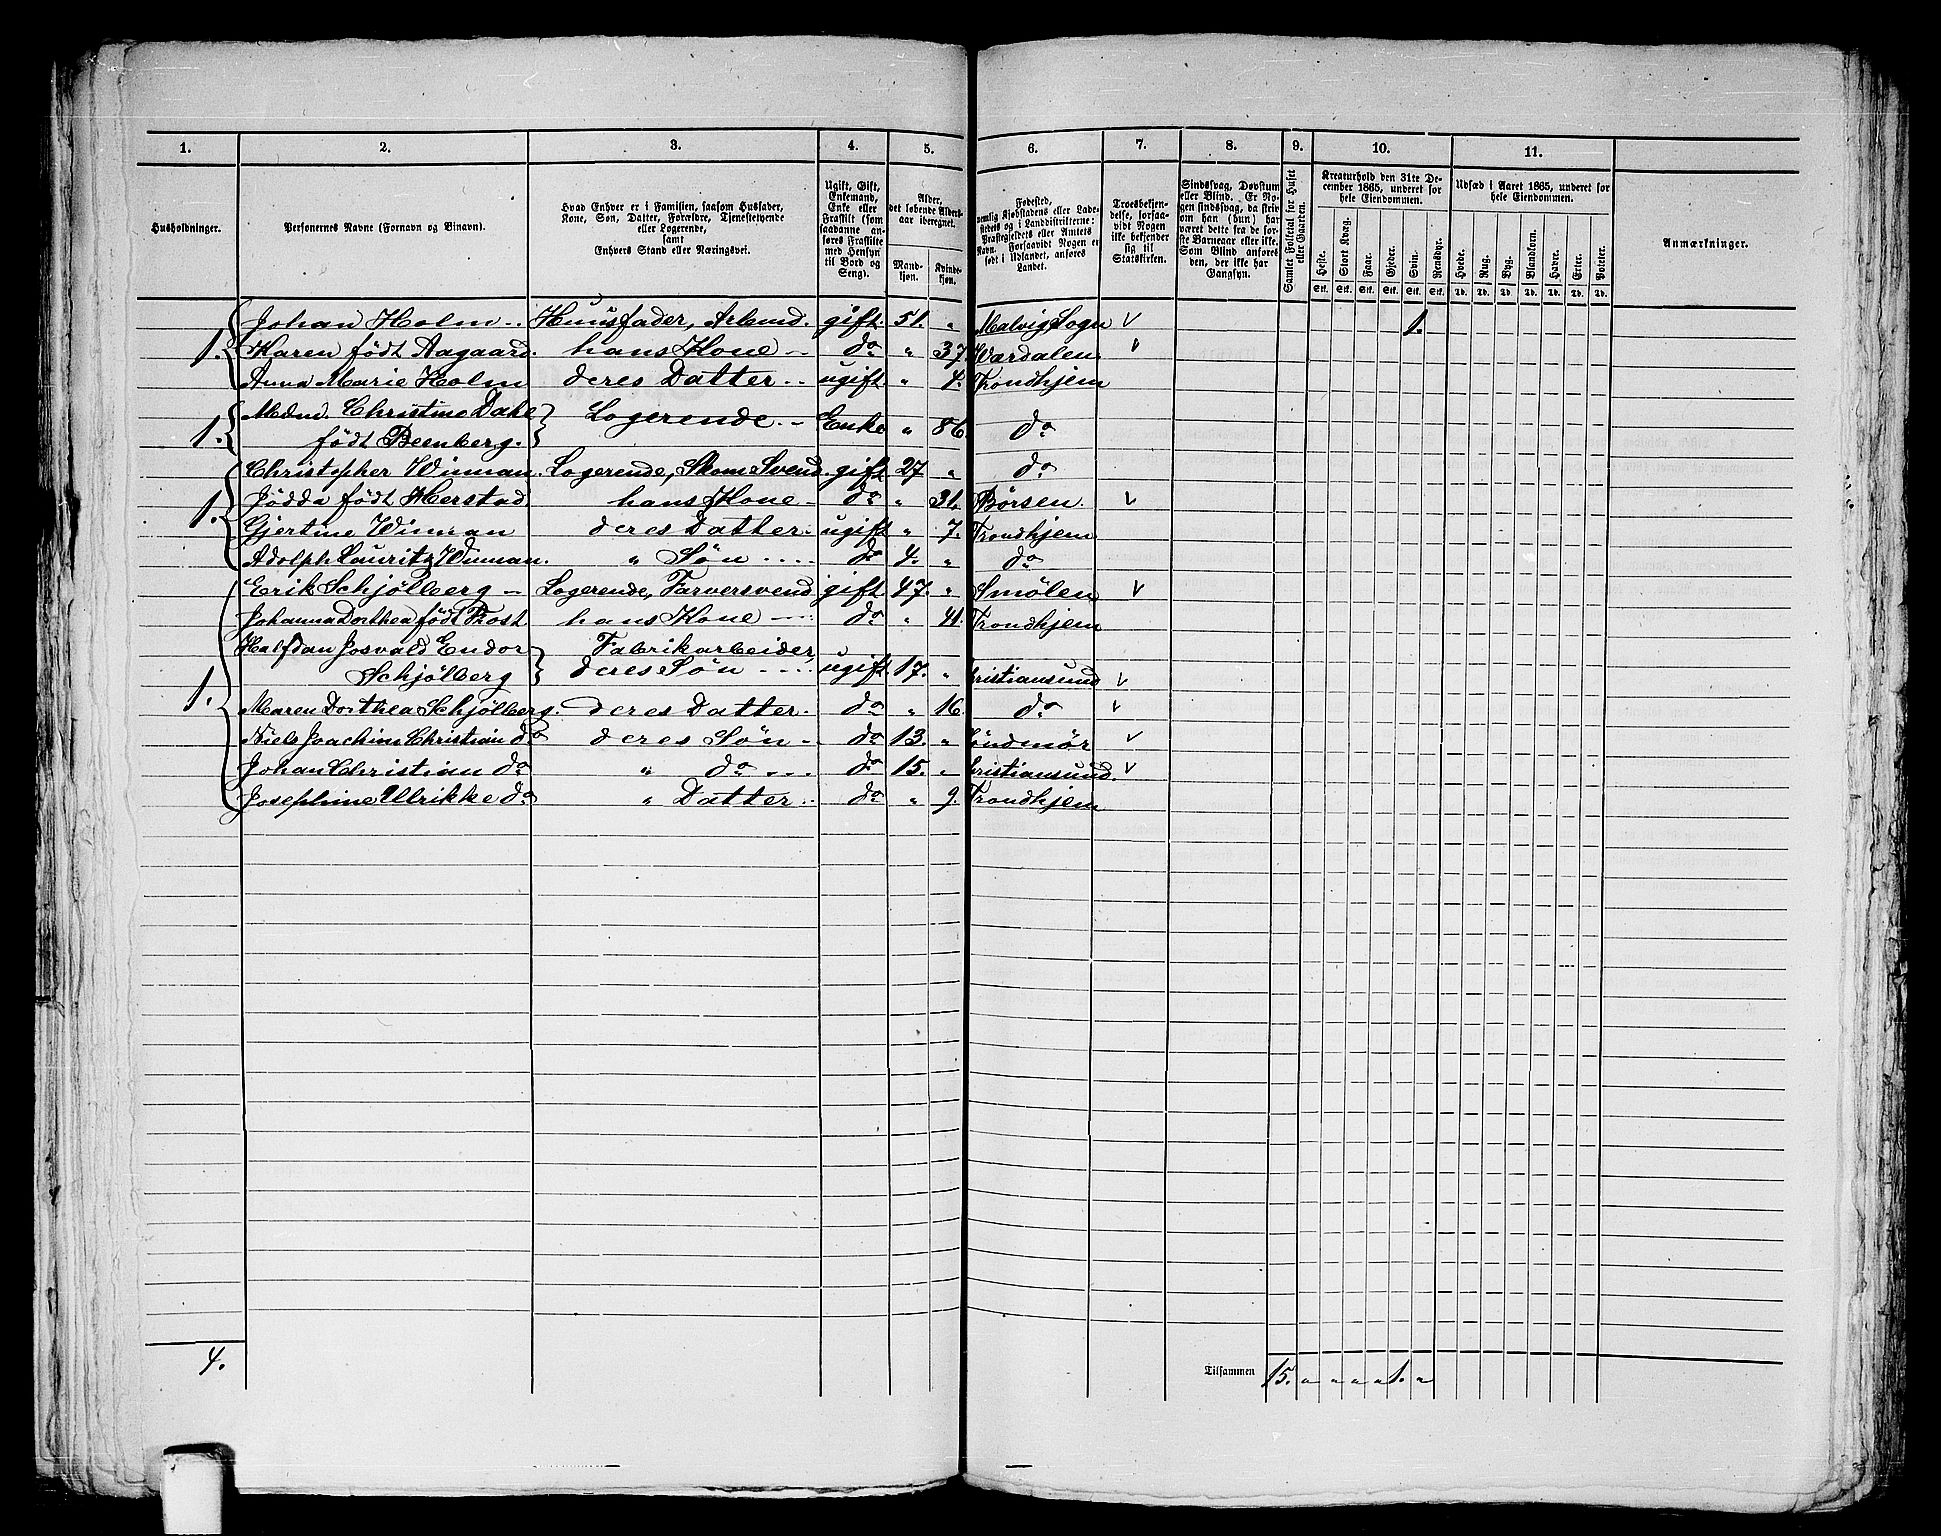 1. 2. 3. 4. 5. 6. 7. 8. 9. 10. 11.
Husholdninger.
Personernes Navne (Fornavn og Binavn).
Hvad Enhver er i Familien, saasom Husfader,
Kone, Søn, Datter, Forældre, Tjenestetyende
eller Logerende,
samt
Enhvers Stand eller Næringsvei.
Ugift, Gift,
Enkemand,
Enke eller
Fraskilt (som
saadanne an-
føres Fraskilte
med Hensyn
til Bord og
Seng).
Alder,
det løbende Alders-
aar iberegnet.
Mand-
kjøn.
Kvinde-
kjøn.
Fødested,
nemlig Kjøbstadens eller Lade-
stedets og i Landdistrikterne:
Præstegjeldets eller Amtets
Navn. Forsaavidt Nogen er
født i Udlandet, anføres
Landet.
Troesbekjen-
delse, forsaa-
vidt Nogen
ikke bekjender
sig til
Statskirken.
Sindssvag, Døvstum
eller Blind. Er No-
gen sindssvag, da skriv
om han (hun) har
været dette fra de før-
ste Barneaar eller ikke.
Som Blind anføres
den, der ikke har
Gangsyn.
Samlet Folketal for Huset
eller Gaarden.
Kreaturhold den 31te De-
cember 1865, underet for
hele Eiendommen.
Heste. Stort Kvæg. Faar. Gjeder. Svin. Rensdyr.
Stk. Stk. Stk. Stk. Stk. Stk.
Udsæd i Aaret 1865, underet for
hele Eiendommen.
Hvede. Rug. Byg. Blandkorn. Havre. Erter. Poteter.
Td. Td. Td. Td. Td. Td. Td.
Anmærkninger.
Johan Holm Huusfader, Arbmd. gift 51. " Malvig Sogn V 1.
1. Karen født Aagaard. hans Kone do " 37. Værdalen "
Anna Marie Holm deres Datter ugift " 4. Trondhjem
Mdm. Christine Dahl Logerende Enke " 86. do
1. født Beenberg.
Christopher Winman. Logerende, Skom. Svend gift 27 " do
1. født Herstad hans Kone do " 31. Børsen. V
Gjertine Winman deres Datter ugift " 7. Trondhjem
Adolph Lauritz Winman. " Søn do 4. " do
Erik Schjølberg Logerende, Farversvend gift 47. " Smølen V
Johanna Dorthea født Rost hans Kone do " 41. Trondhjem
Halfdan Josvald Endor Fabrikarbeider,
1. Schjølberg deres Søn ugift 17. " Cristiansund V
Maren Dorthea Schjølberg. deres Datter. do " 16. do V
Niels Joachim Christian do deres Søn do 13. " Søndmør V
Johan Christian do " do do 15. " Cristiansund. V
Josephine Ulrikke do " Datter do " 9. Trondhjem
4. Tilsammen 15. " " " " 1. "